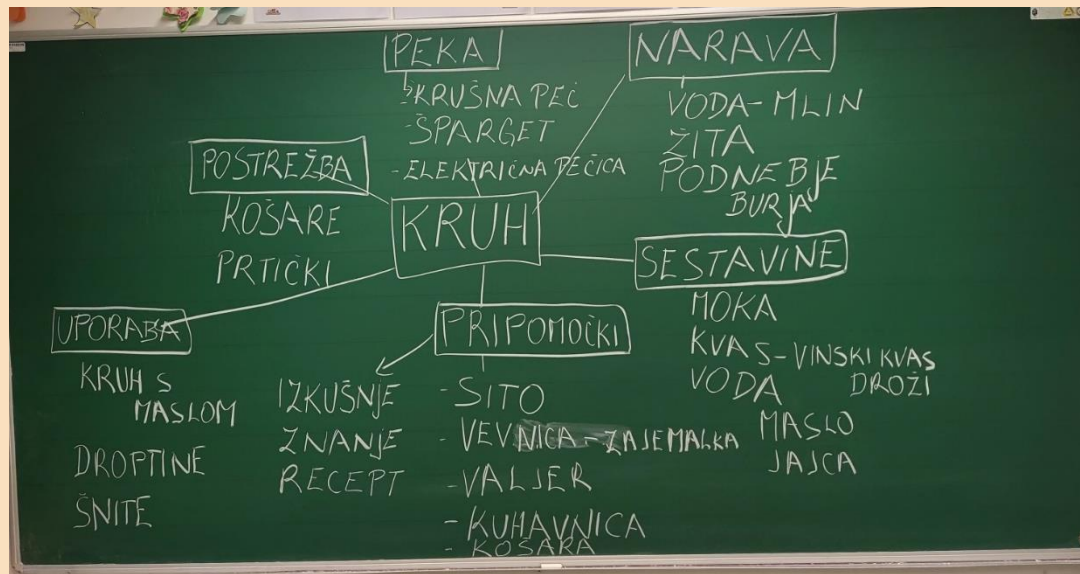 PEKA
- KRUŠNA PEČ
- ŠPARGET
- ELEKTRIČNA PEČICA
NARAVA
VODA - MLIN
ŽITA
PODNEBJE
BURJA
POSTREŽBA
KOŠARE
PRTIČKI
KRUH
SESTAVINE
MOKA
KVAS - VINSKI KVAS
VODA DROŽI
MASLO
JAJCA
UPORABA
KRUH S
MASLOM
DROPTINE
ŠNITE
PRIPOMOČKI
IZKUŠNJE
ZNANJE
RECEPT
- SITO
- VEVNICA - ZAJEMALKA
- VALJER
- KUHAVNICA
- KOŠARA